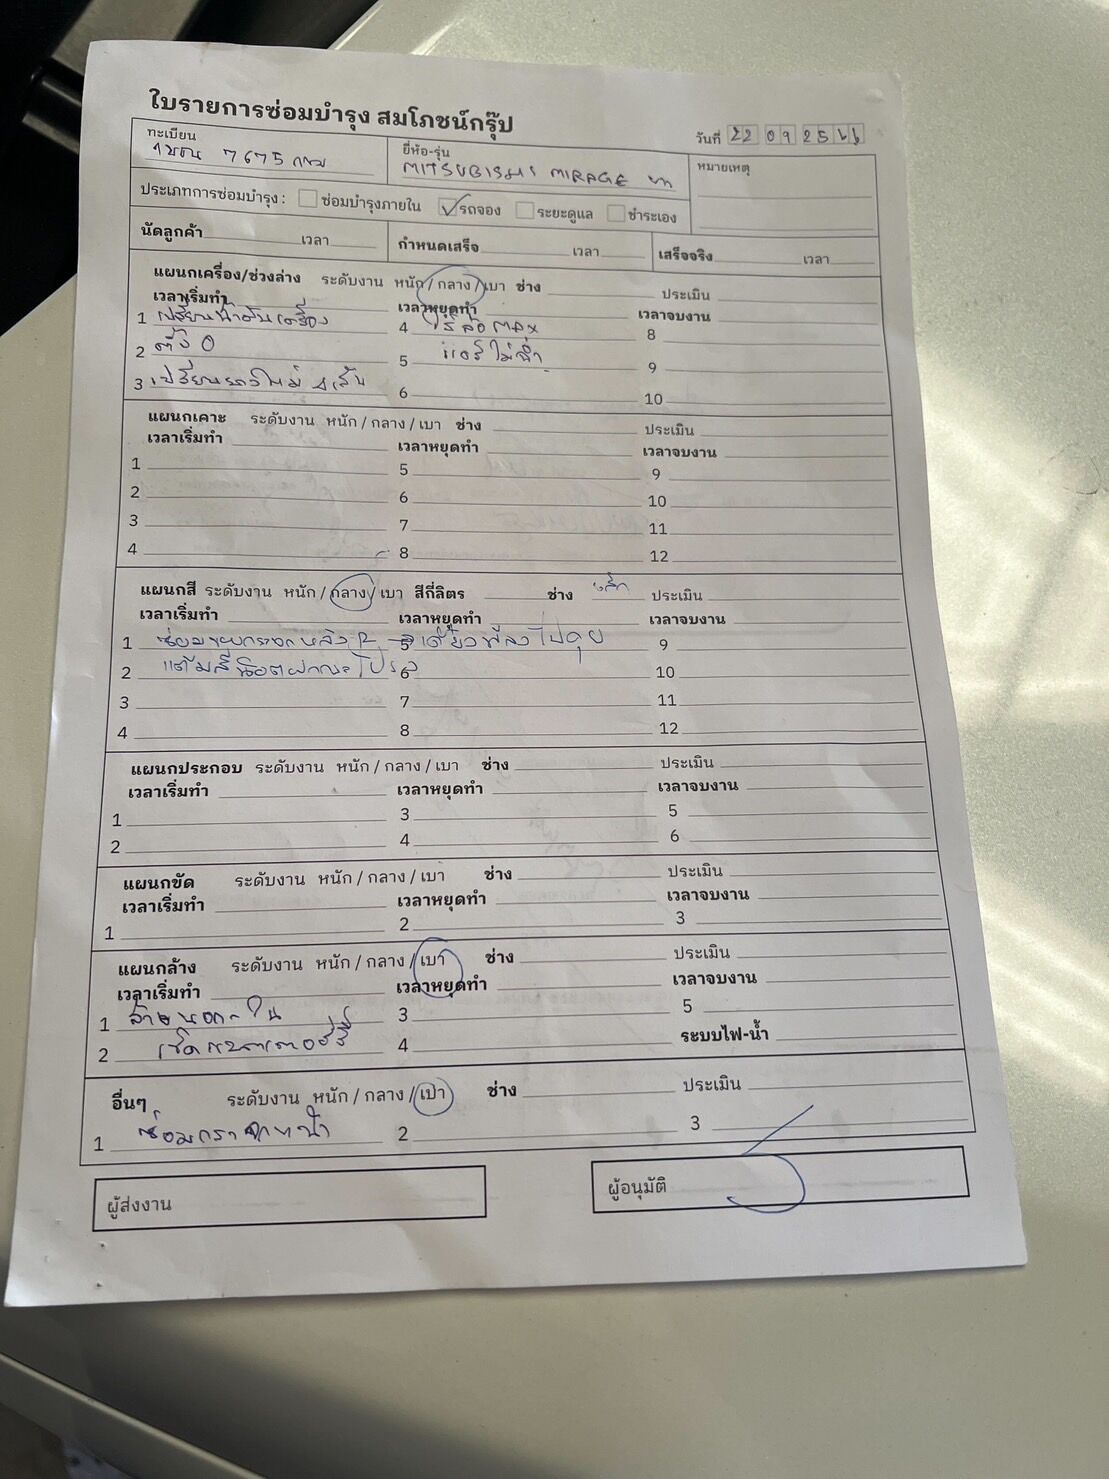 ใบรายการซ่อมบำรุง สมโภชน์กรุ๊ป
วันที่ 22 09 25
ทะเบียน 7675 กทม
ยี่ห้อ-รุ่น MITSUBISHI MIRAGE
หมายเหตุ
ประเภทการซ่อมบำรุง : ซ่อมบำรุงภายใน รถจอง ระยะดูแล ชำระเอง
นัดลูกค้า เวลา กำหนดเสร็จ เวลา เสร็จจริง เวลา
แผนกเครื่อง/ช่วงล่าง ระดับงาน หนัก / กลาง / เบา ช่าง ประเมิน
เวลาเริ่มทำ เวลาหยุดทำ เวลาจบงาน
1 เปลี่ยนน้ำมันเครื่อง 4 ล้อ MAX 8
2 ตั้ง 0 5 แอร์ไม่ฉ่ำ 9
3 เปลี่ยนยางใหม่ 4 เส้น 6 10
แผนกเคาะ ระดับงาน หนัก / กลาง / เบา ช่าง ประเมิน
เวลาเริ่มทำ เวลาหยุดทำ เวลาจบงาน
1 5 9
2 6 10
3 7 11
4 8 12
แผนกสี ระดับงาน หนัก / กลาง / เบา สีกี่ลิตร ช่าง เล็ก ประเมิน
เวลาเริ่มทำ เวลาหยุดทำ เวลาจบงาน
1 ซ่อม หลัง R 5 เดี๋ยวพี่ลงไปคุย 9
2 แต้มสีน็อตฝากระโปรง 6 10
3 7 11
4 8 12
แผนกประกอบ ระดับงาน หนัก / กลาง / เบา ช่าง ประเมิน
เวลาเริ่มทำ เวลาหยุดทำ เวลาจบงาน
1 3 5
2 4 6
แผนกขัด ระดับงาน หนัก / กลาง / เบา ช่าง ประเมิน
เวลาเริ่มทำ เวลาหยุดทำ เวลาจบงาน
1 2 3
แผนกล้าง ระดับงาน หนัก / กลาง / เบา ช่าง ประเมิน
เวลาเริ่มทำ เวลาหยุดทำ เวลาจบงาน
1 ล้างนอก-ใน 3 5
2 เช็คแบตเตอรี่ 4 ระบบไฟ-น้ำ
อื่นๆ ระดับงาน หนัก / กลาง / เบา ช่าง ประเมิน
1 ซ่อมกระจกหน้า 2 3
ผู้ส่งงาน
ผู้อนุมัติ